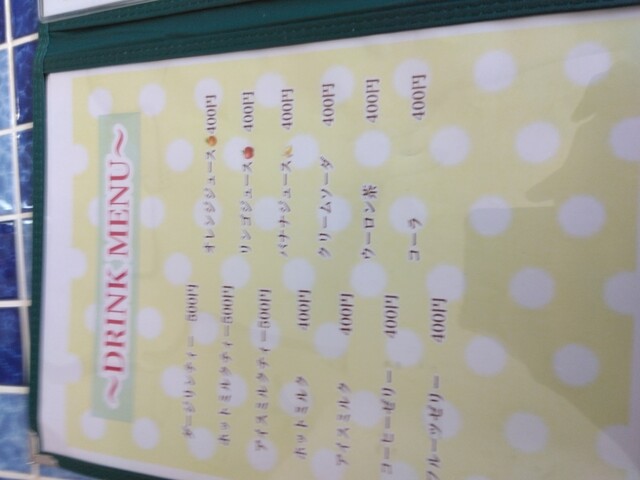 ～DRINK MENU～
ダージリンティー 500円
ホットミルクティー500円
アイスミルクティー500円
ホットミルク 400円
アイスミルク 400円
コーヒーゼリー 400円
フルーツゼリー 400円
オレンジジュース 400円
リンゴジュース 400円
バナナジュース 400円
クリームソーダ 400円
ウーロン茶 400円
コーラ 400円